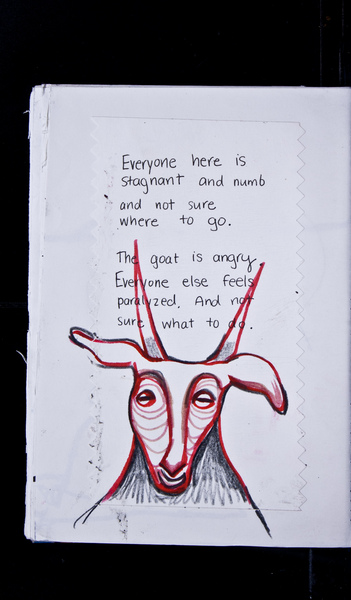 Everyone here is
stagnant and numb
and not sure
where to go.
The goat is angry.
Everyone else feels
paralyzed. And not
sure what to do.